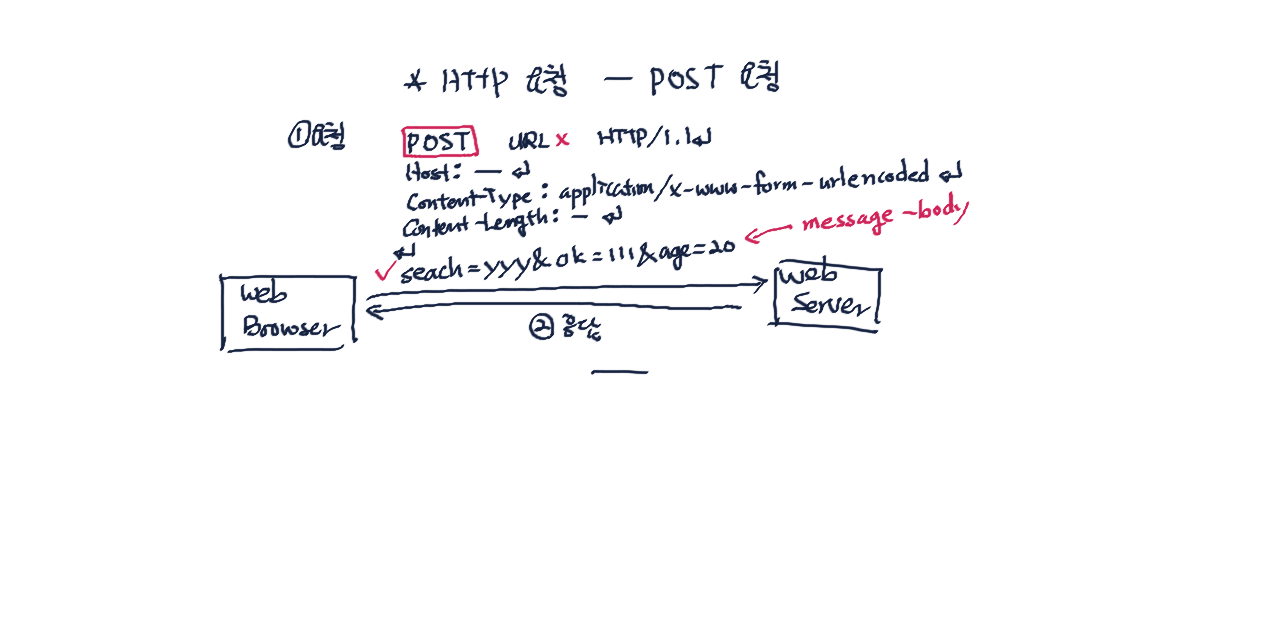 * HTTP 요청 — POST 요청
①요청
POST URL x HTTP/1.1↵
Host: — ↵
Content-Type: application/x-www-form-urlencoded ↵
Content-Length: — ↵
↵
seach=yyy&ok=111&age=20
message-body
Web
Browser
Web
Server
② 응답